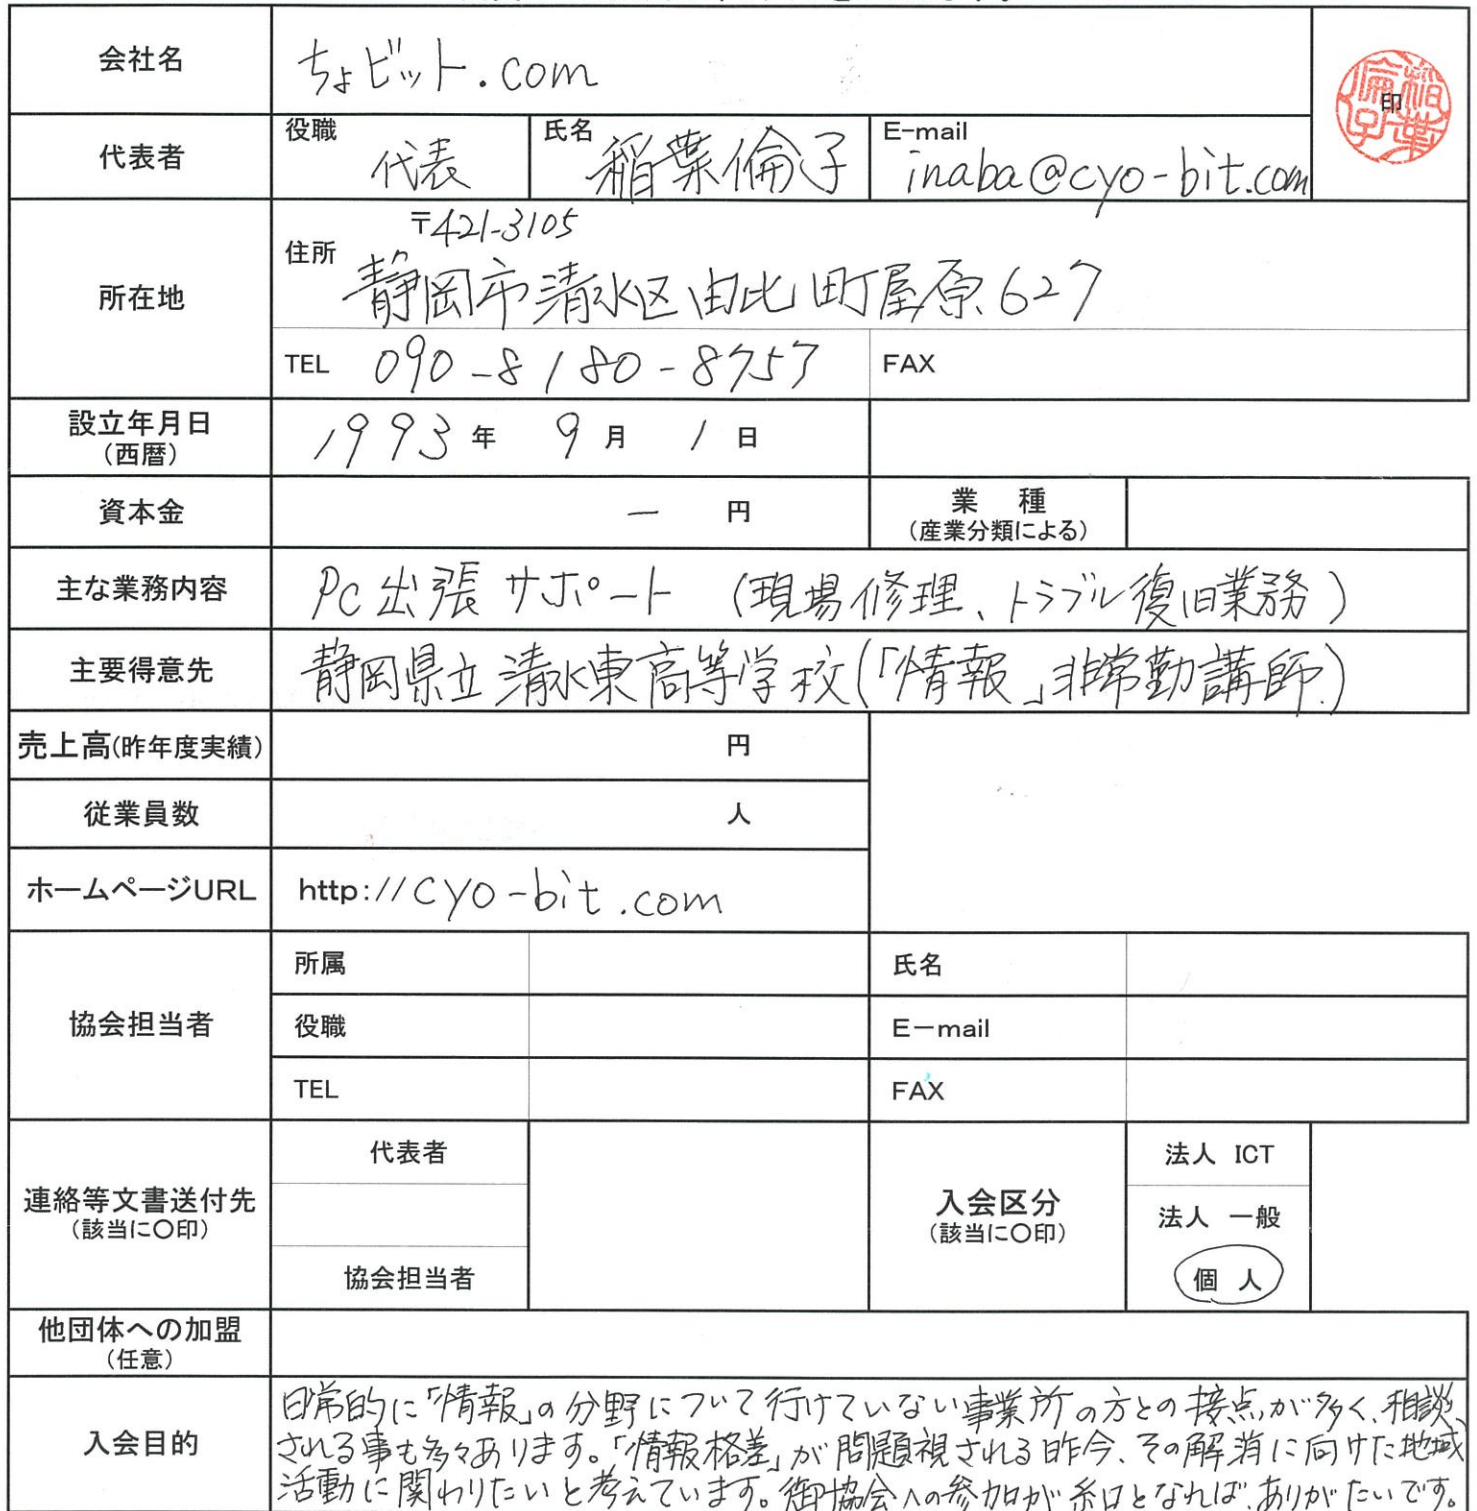 会社名 ちょビット.com 印
稲葉倫子
代表者 役職 代表 氏名 稲葉倫子 E-mail inaba@cyo-bit.com
所在地 住所 〒421-3105
静岡市清水区由比町屋原627
TEL 090-8180-8757 FAX
設立年月日 1993年 9月 1日
(西暦)
資本金 ー 円 業 種
(産業分類による)
主な業務内容 PC出張サポート (現場修理、トラブル復旧業務)
主要得意先 静岡県立清水東高等学校(「情報」非常勤講師)
売上高(昨年度実績) 円
従業員数 人
ホームページURL http://cyo-bit.com
協会担当者 所属 氏名
役職 E-mail
TEL FAX
連絡等文書送付先 代表者 入会区分 法人 ICT
(該当に〇印) (該当に〇印) 法人 一般
協会担当者 個 人
他団体への加盟
(任意)
入会目的 日常的に「情報」の分野について行けていない事業所の方との接点が多く、相談
される事も多々あります。「情報格差」が問題視される昨今、その解消に向けた地域
活動に関わりたいと考えています。御協会への参加が糸口となれば、ありがたいです。